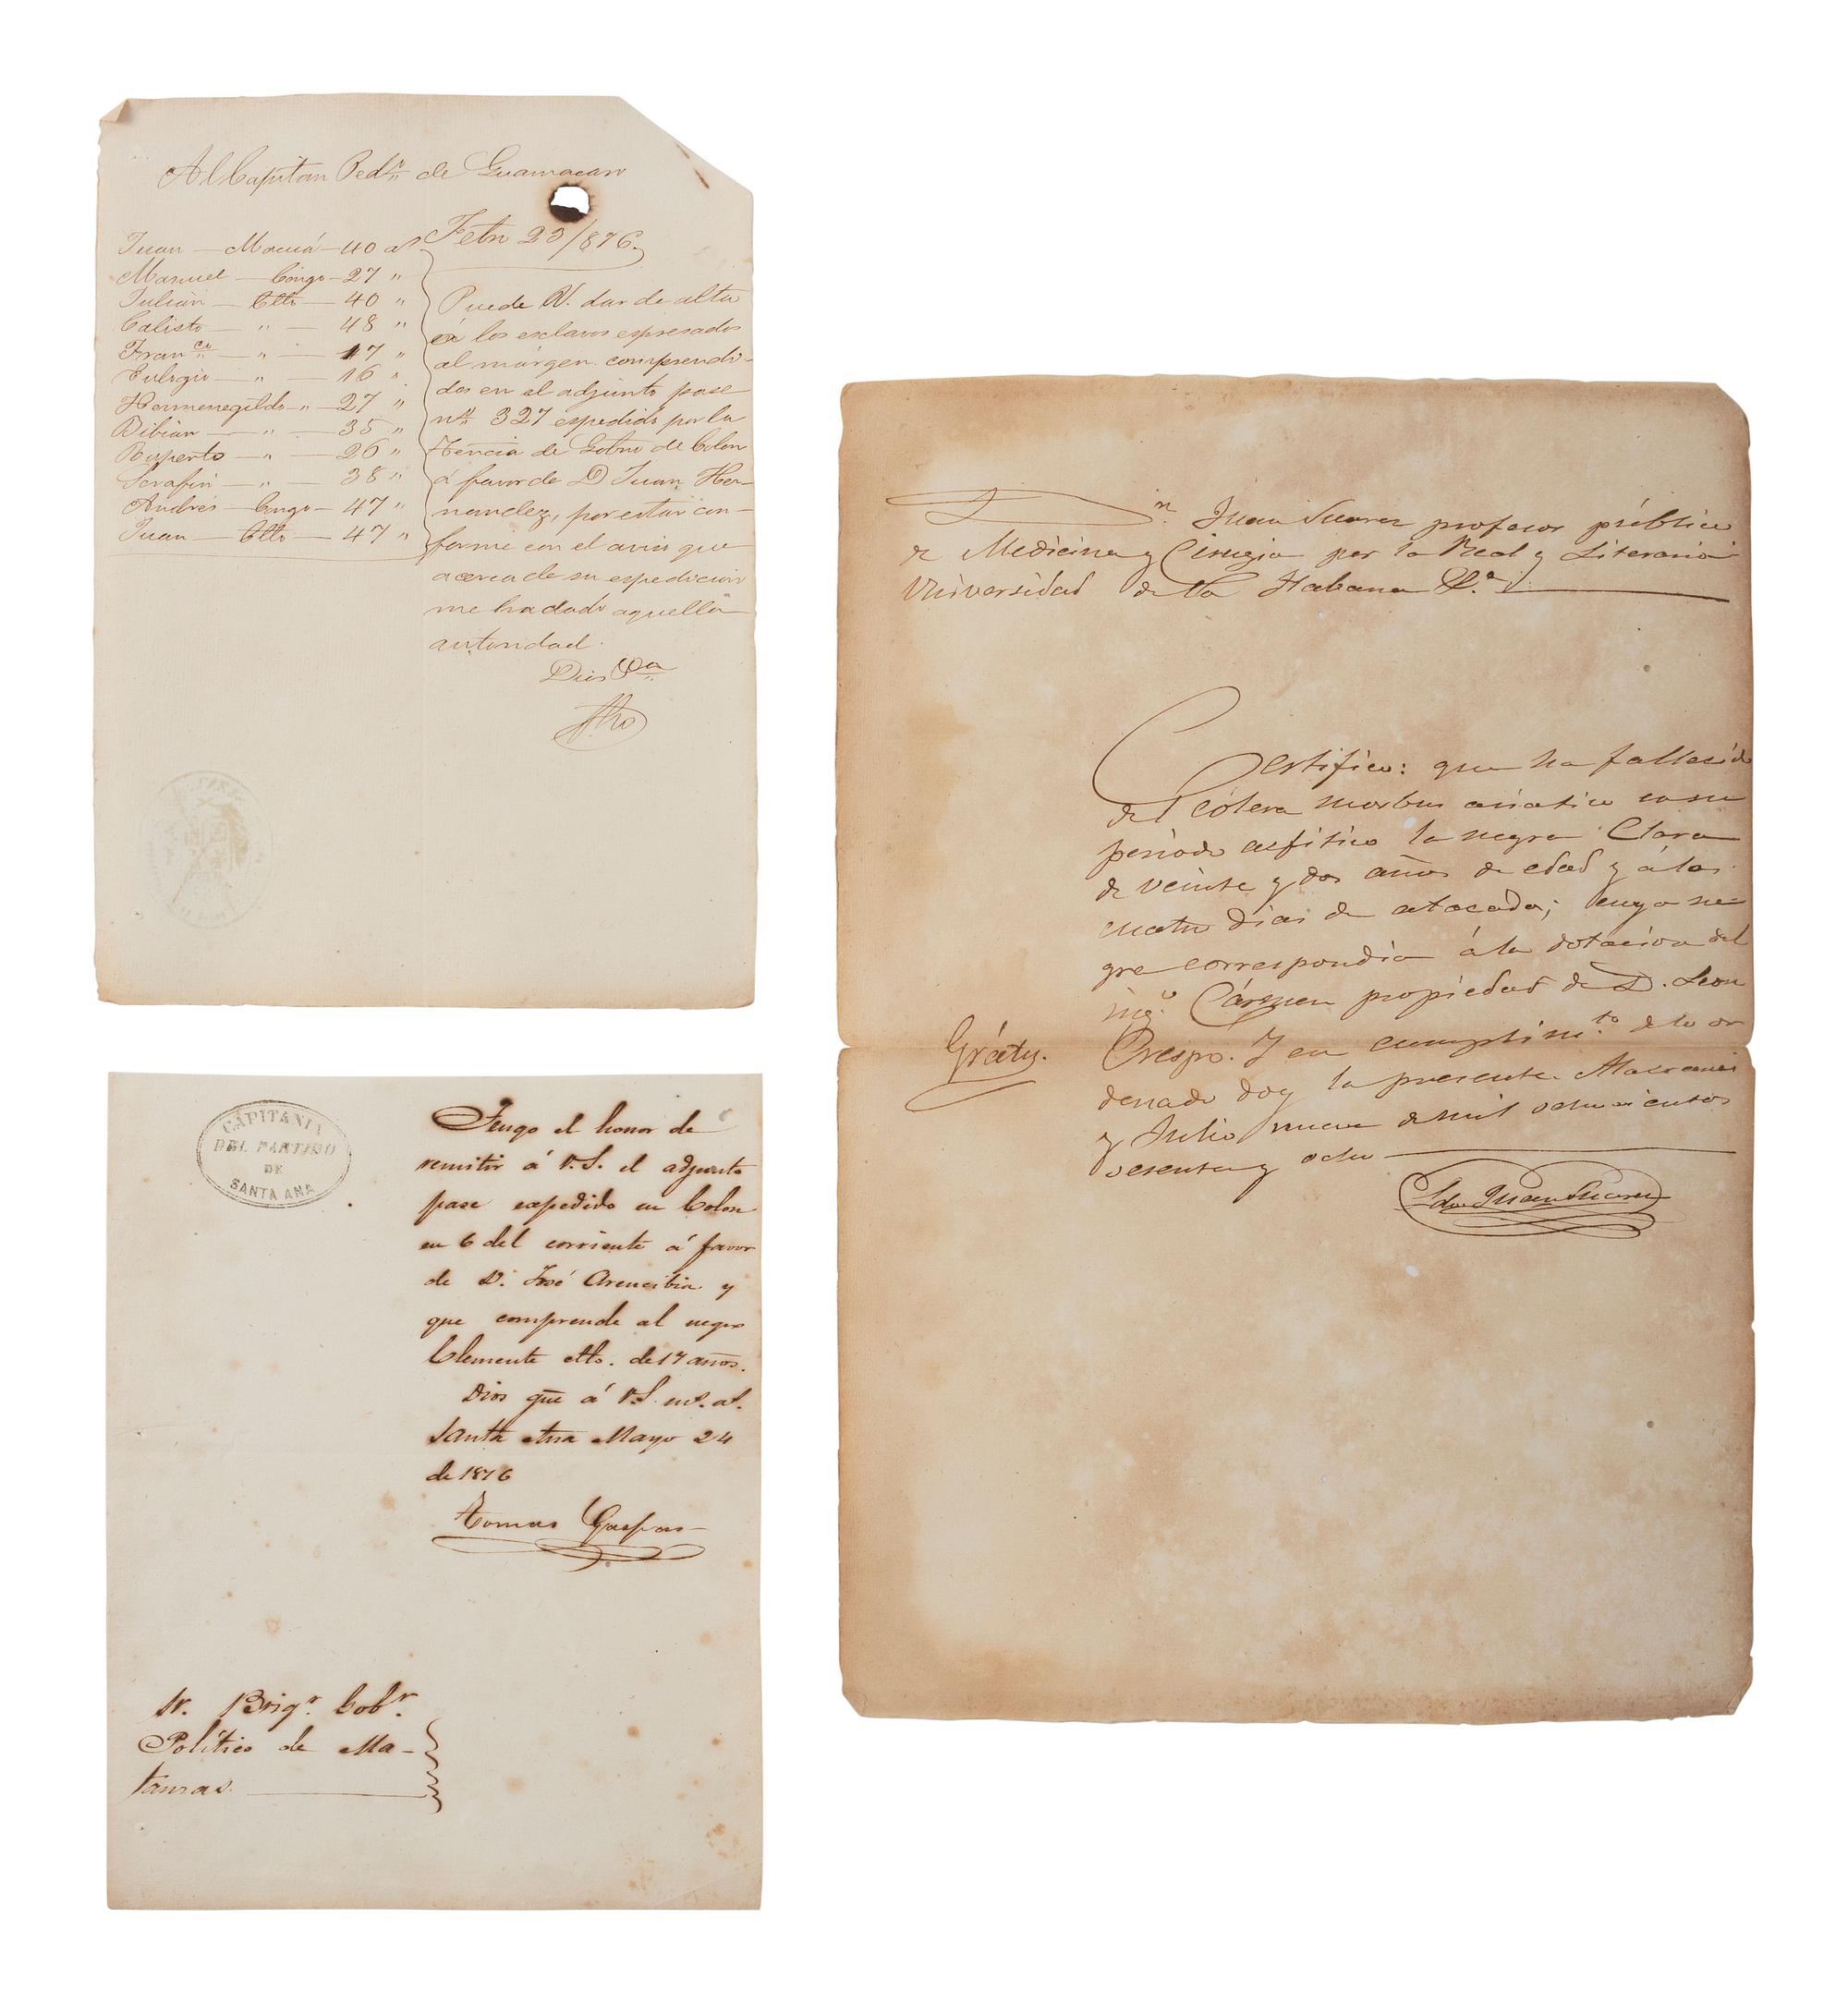 Al Capitan Ped.º de Guamacaro
Juan — Macuá — 40 a.s
Manuel — Congo — 27 "
Julian — Cllo — 40 "
Calisto — " — 48 "
Fran.co — " — 17 "
Eulogio — " — 16 "
Hermenegildo — " — 27 "
Bibian — " — 35 "
Ruperto — " — 26 "
Serafin — " — 38 "
Andrés — Congo — 47 "
Juan — Cllo — 47 "
Febr 23/876
Puede V. dar de alta
á los esclavos espresados
al márgen comprendi-
dos en el adjunto pase
nº 327 espedido por la
Tencia de Gobno de Colon
á favor de D Juan Her-
nandez, por estar con-
forme con el aviso que
acerca de su espedicion
me ha dado aquella
autoridad.
Dios
CAPITANIA
DEL PARTIDO
DE
SANTA ANA
Tengo el honor de
remitir á V.S. el adjunto
pase expedido en Colon
en 6 del corriente á favor
de D. José Arencibia y
que comprende al negro
Clemente cllo. de 17 años.
Dios gūe á V.S. ms. as.
Santa Ana Mayo 24
de 1876
Tomas Gaspar
Sr. Brig.r Gob.r
Político de Ma-
tanzas.
Juan Suarez profesor público
de Medicina y Cirugia por la Real y Literaria
Universidad de la Habana &.a
Certifico: que ha fallecido
del cólera morbus asiatico en su
período asfitico la negra Clara
de veinte y dos años de edad y á los
cuatro dias de atacada; cuya ne-
gra correspondia á la dotacion del
ing.º Cármen propiedad de D. Leon
Crespo. Y en cumplim.to de lo or
denado doy la presente
y Julio nueve de mil ochocientos
sesenta y ocho
Grátis.
Ldo Juan Suarez